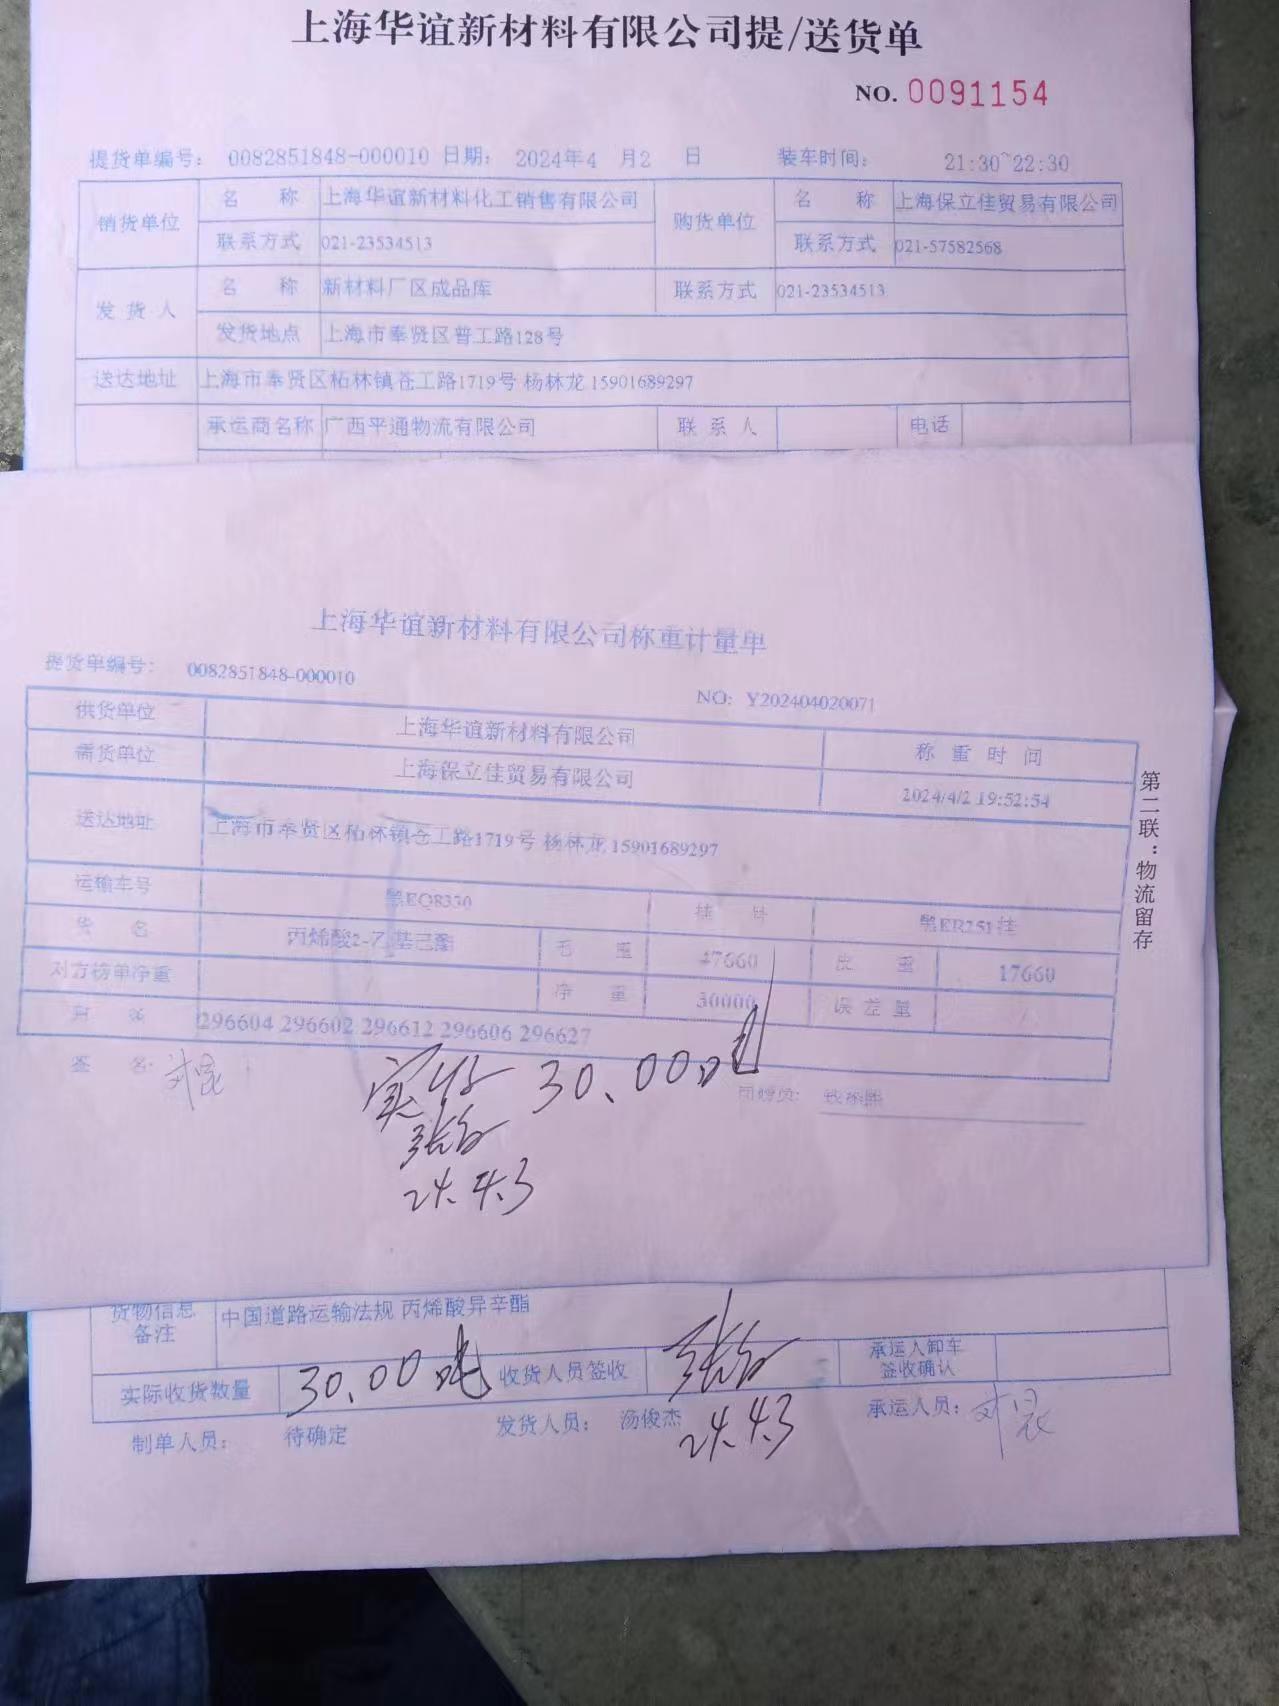 上海华谊新材料有限公司提/送货单
NO. 0091154
提货单编号: 0082851848-000010 日期: 2024年4 月2 日 装车时间: 21:30~22:30
销货单位 名 称 上海华谊新材料化工销售有限公司 购货单位 名 称 上海保立佳贸易有限公司
联系方式 021-23534513 联系方式 021-57582568
发 货 人 名 称 新材料厂区成品库 联系方式 021-23534513
发货地点 上海市奉贤区普工路128号
送达地址 上海市奉贤区柘林镇苍工路1719号 杨林龙 15901689297
承运商名称 广西平通物流有限公司 联 系 人 电话
上海华谊新材料有限公司称重计量单
提货单编号: 0082851848-000010
NO: Y202404020071
供货单位 上海华谊新材料有限公司 称 重 时 间
需货单位 上海保立佳贸易有限公司 2024/4/2 19:52:54
送达地址 上海市奉贤区柘林镇苍工路1719号 杨林龙 15901689297
运输车号 黑EQ8330 挂 号 黑ER251挂
货 名 丙烯酸2-乙基己酯 毛 重 47660 皮 重 17660
对方磅单净重 / 净 重 30000 误 差 量 /
296604 296602 296612 296606 296627
签 名:
实收 30.00吨
司磅员:
24.4.3
第二联：物流留存
货物信息备注 中国道路运输法规 丙烯酸异辛酯
实际收货数量 30.00吨 收货人员签收 承运人卸车签收确认
制单人员: 待确定 发货人员: 汤俊杰 24.4.3 承运人员: